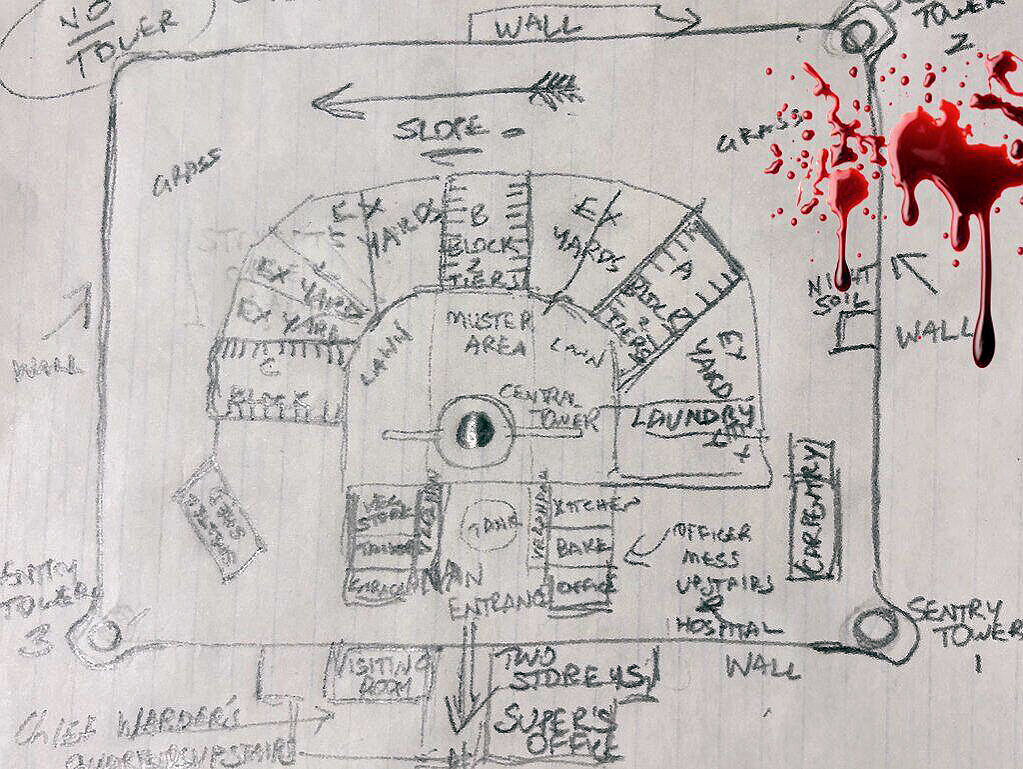 NO
TOWER
WALL
TOWER
2
SLOPE
GRASS
GRASS
EX
YARDS
B
BLOCK
2
TIERS
EX
YARDS
A
BLOCK
2
TIERS
EX YARD
EX YARD
C
BLOCK
LAWN
MUSTER
AREA
LAWN
EX
YARD
NIGHT
SOIL
WALL
WALL
CENTRAL
TOWER
LAUNDRY
CARPENTRY
VEG
STORE
TAILOR
TANK
VERANDAH
KITCHEN
BAKE
OFFICE
OFFICER
MESS
UPSTAIRS
HOSPITAL
MAIN
ENTRANCE
SENTRY
TOWER
3
SENTRY
TOWER
1
VISITING
ROOM
TWO
STOREYS
WALL
SUPER'S
OFFICE
CHIEF WARDER'S
QUARTERS UPSTAIRS